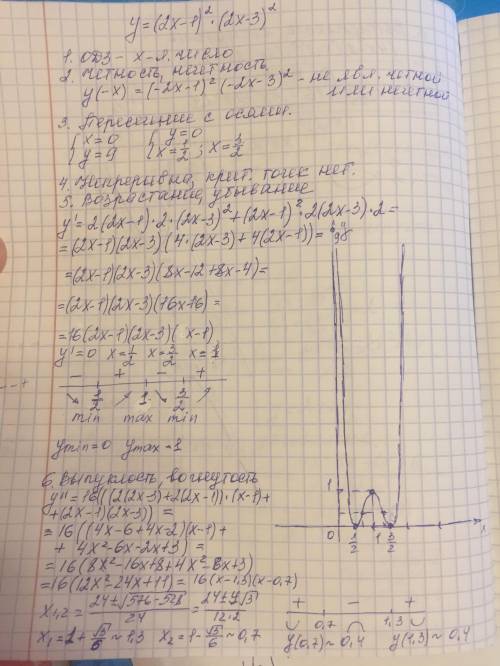 y=(2x-1)²·(2x-3)²
1. ОДЗ - x-л. число
2. Четность, нечетность
y(-x)=(-2x-1)²(-2x-3)² - не явл. четной
или нечетной
3. Пересечение с осями.
{x=0 {y=0
{y=9 {x=1/2; x=3/2
4. Непрерывна, крит. точек нет.
5. Возрастание, убывание
y'=2(2x-1)·2·(2x-3)²+(2x-1)²·2(2x-3)·2=
=(2x-1)(2x-3)(4·(2x-3)+4(2x-1))=
=(2x-1)(2x-3)(8x-12+8x-4)=
=(2x-1)(2x-3)(16x-16)=
=16(2x-1)(2x-3)(x-1)
y'=0 x=1/2 x=3/2 x=1
- + - +
↘ 1/2 ↗ 1 ↘ 3/2 ↗
min max min
ymin=0 ymax=1
6. Выпуклость, вогнутость
y''=16((2(2x-3)+2(2x-1))·(x-1)+
+(2x-1)(2x-3))=
=16((4x-6+4x-2)(x-1)+
+4x²-6x-2x+3)=
=16(8x²-16x+8+4x²-8x+3)
=16(12x²-24x+11)=16(x-1,3)(x-0,7)
x1,2=(24±√(576-528))/24=(24±4√3)/(12·2)
x1=1+√3/6~1,3 x2=1-√3/6~0,7
+ - +
0,7 1,3
y(0,7)~0,4 y(1,3)~0,4
1
0 1/2 1 3/2 x